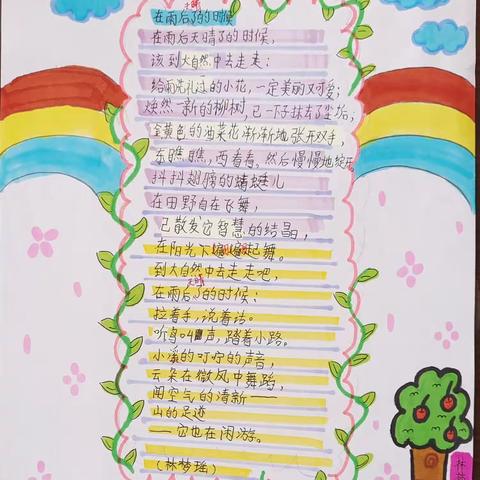 在雨后天晴了的时候
在雨后天晴了的时候,
该到大自然中去走走:
给雨洗礼过的小花,一定美丽又可爱;
焕然一新的柳树,已一下子抹去了尘垢;
金黄色的油菜花渐渐地张开双手,
东瞧瞧,西看看,然后慢慢地绽开。
抖抖翅膀的蜻蜓儿
在田野自在飞舞,
已散发出智慧的结晶,
在阳光下翩翩起舞。
到大自然中去走走吧,
在雨后天晴了的时候:
拉着手,说着话。
听鸟叫声,踏着小路。
小溪的叮咛的声音,
云朵在微风中舞蹈,
闻空气的清新——
山的足迹
——它也在闲游。
(林梦瑶)
林